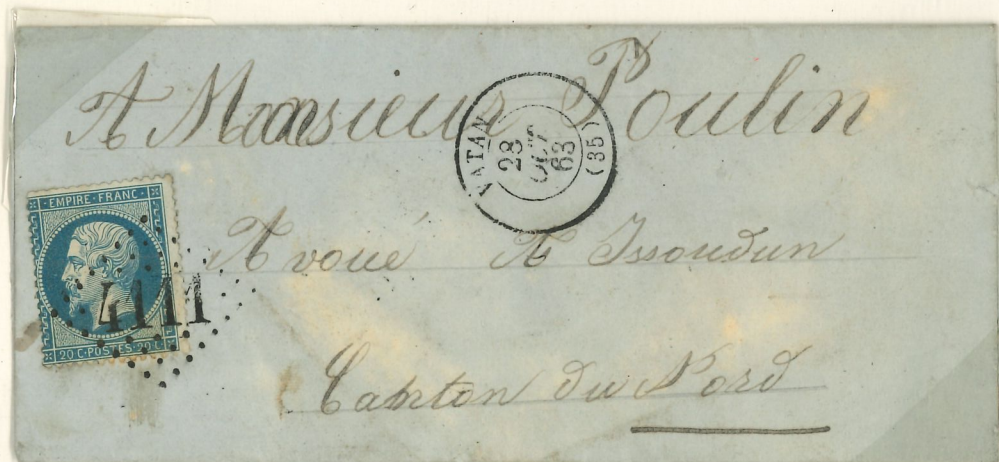 A Monsieur Poulin
VATAN
28
OCT
63
(35)
EMPIRE FRANC
4111
20 C POSTES 20 C
Avoué A Issoudun
Canton du Nord